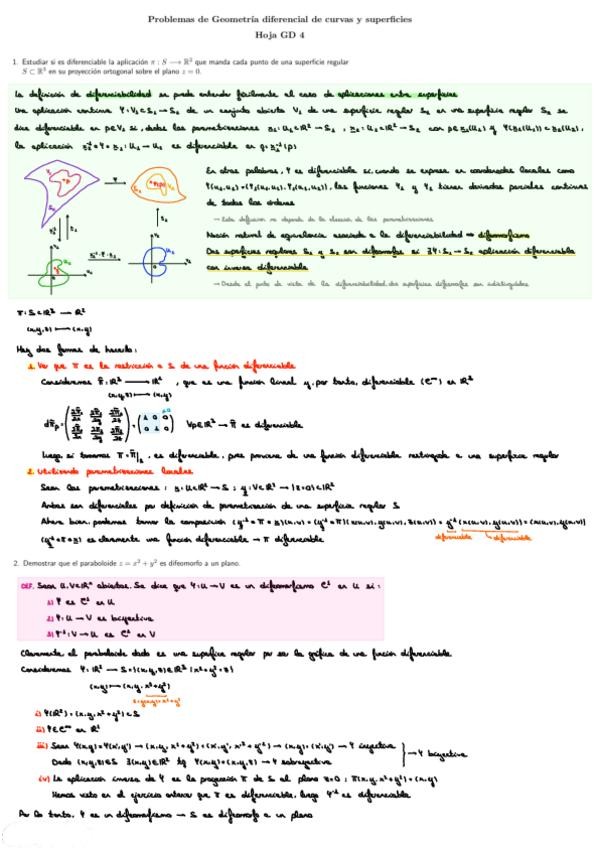 Problemas de Geometría diferencial de curvas y superficies
Hoja GD 4
1. Estudiar si es diferenciable la aplicación π : S ⟶ ℝ² que manda cada punto de una superficie regular
S ⊂ ℝ³ en su proyección ortogonal sobre el plano z = 0.
La definición de diferenciabilidad se puede extender fácilmente al caso de aplicaciones entre superficies
Una aplicación continua φ: V₁ ⊂ S₁ → S₂ de un conjunto abierto V₁ de una superficie regular S₁ en una superficie regular S₂ se
dice diferenciable en p∈V₁ si, dadas las parametrizaciones
la aplicación es diferenciable en q =
En otras palabras, φ es diferenciable si, cuando se expresa en coordenadas locales como
las funciones φ₁ y φ₂ tienen derivadas parciales continuas
de todos los órdenes
→ Esta definición no depende de la elección de las parametrizaciones
Noción natural de equivalencia asociada a la diferenciabilidad → difeomorfismo
Dos superficies regulares S₁ y S₂ son difeomorfas si ∃φ: S₁ → S₂ aplicación diferenciable
con inversa diferenciable
→ Desde el punto de vista de la diferenciabilidad, dos superficies difeomorfas son indistinguibles
π: S ⊂ ℝ³ → ℝ²
(x,y,z) ⟼ (x,y)
Hay dos formas de hacerlo:
1. Ver que π es la restricción a S de una función diferenciable
Consideremos π̃: ℝ³ → ℝ², que es una función lineal y, por tanto, diferenciable (C^∞) en ℝ³
(x,y,z) ⟼ (x,y)
∀p∈ℝ³ → π̃ es diferenciable
Luego, si tomamos π = π̃|ₛ, es diferenciable, pues proviene de una función diferenciable restringida a una superficie regular
2. Utilizando parametrizaciones locales
Sean las parametrizaciones:
Ambas son diferenciables por definición de parametrización de una superficie regular S
Ahora bien, podemos tomar la composición
diferenciable diferenciable
es claramente una función diferenciable → π diferenciable
2. Demostrar que el paraboloide z = x² + y² es difeomorfo a un plano.
DEF. Sean U, V ⊂ ℝⁿ abiertos. Se dice que φ: U → V es un difeomorfismo C¹ en U si:
1) φ es C¹ en U
2) φ: U → V es biyectiva
3) φ⁻¹: V → U es C¹ en V
Claramente el paraboloide dado es una superficie regular por ser la gráfica de una función diferenciable
Consideremos φ: ℝ² → S = {(x,y,z)∈ℝ³ | x²+y² = z}
(x,y) ⟼ (x,y,x²+y²)
i) φ(ℝ²) = (x,y,x²+y²) ⊂ S
ii) φ∈C^∞ en ℝ²
iii) Sean φ(x,y) = φ(x',y') → (x,y,x²+y²) = (x',y',x'²+y'²) → (x,y) = (x',y') → φ inyectiva
→ φ biyectiva
Dado (x,y,z)∈S ∃(x,y)∈ℝ² tq φ(x,y) = (x,y,z) → φ sobreyectiva
iv) La aplicación inversa de φ es la proyección π de S al plano z=0: π(x,y,x²+y²) = (x,y)
Hemos visto en el ejercicio anterior que π es diferenciable, luego φ⁻¹ es diferenciable
Por lo tanto, φ es un difeomorfismo → S es difeomorfo a un plano